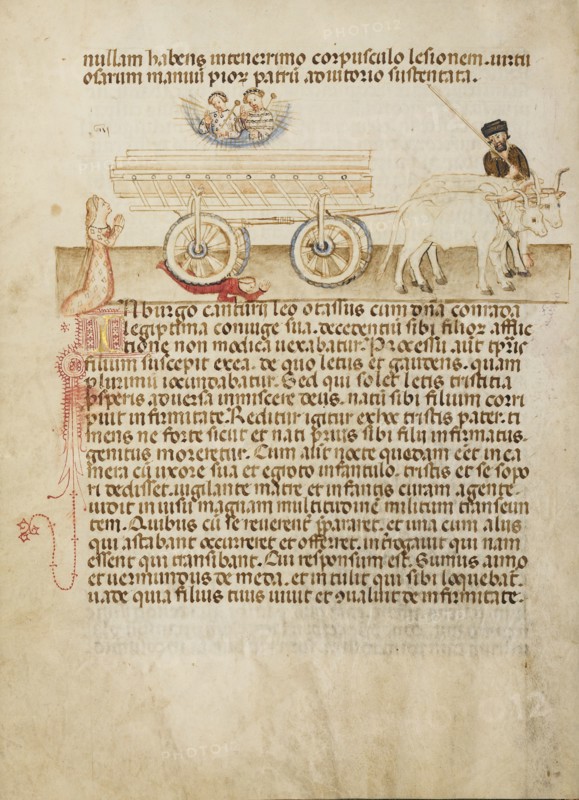 nullam habens intenerrimo corpusculo lesionem. virtu
osarum manuū pioꝝ patrū adiutorio sustentata.
N burgo canturij leo otassus cum dña conrada
legiptima coniuge sua. decedentiū sibi filioꝝ afflic
tione non modica uexabatur. Processu aūt tp̄ris
filium suscepit ex ea. de quo letus et gaudens. quam
plurimū iocundabatur. Sed qui solet letis tristitia
ꝓsperis aduersa inmiscere deus. natū sibi filium corri
puit infirmitate. Redditur igitur ex hoc tristis pater. ti
mens ne forte sicut et nati prius sibi filii infirmatus.
genitus moreretur. Cum aūt nocte quedam eēt in ca
mera cū uxore sua et egroto infantulo. tristis et se sopo
ri dedisset. uigilante matre et infantis curam agente.
uidit in uisu magnam multitudinē militum transeun
tem. Quibus cū se reuerent̄ p̄pararet. et una cum aliis
qui astabant occurreret et offerret. int̄rogauit qui nam
essent qui transibant. Cui responsum est. Sumus aimo
et uermundus de meda. et intulit qui sibi loquebat̄.
uade quia filius tuus uiuit et ɔualuit de infirmitate.